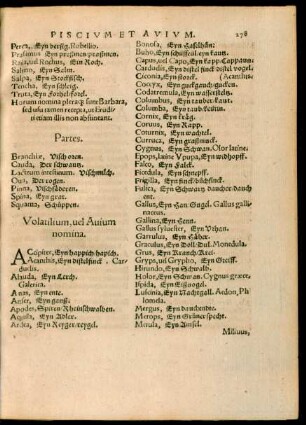 PISCIVM ET AVIVM. 278
Perca, Eyn bersig. Rubellio.
Prasinus: Eyn presmen: prosinen.
Raja, uel Rochus, Ein Roch.
Salmo, Eyn Salm.
Salpa, Eyn Stockfisch.
Tencha, Eyn schleig.
Truta, Eyn forhel: forel.
Horum nomina pleraq; sunt Barbara,
sed usu tamen recepta, ut Erudio
ri etiam illis non abstineant.
Partes.
Branchiæ, Visch oren.
Cauda, Der schwantz.
Lactitum intestinum. Vischmilch.
Oua, Der rogen.
Pinna, Vischfäderen.
Spina, Eyn grat.
Squama, Schüppen.
Volatilium, uel Auium
nomina.
ACcipiter, Eyn happich: hapich.
Acanthis, Eyn distelfinck. Car-
duelis.
Alauda, Eyn Lerch.
Galerica.
Anas, Eyn ente.
Anser, Eyn ganß.
Apodes, Spiren: Rheinschwalben.
Aquila, Eyn Adler.
Ardea, Eyn Reyger: reygel.
Bonosa, Eyn Haselhün:
Bubo, Eyn schüffeul: eyn kautz.
Capus, uel Capo, Eyn kapp: Cappann:
Carduelis, Eyn distel finck: distel vogel.
Ciconia, Eyn storck. Acanthis
Coccyx, Eyn guckgauch: gutzgauch.
Codatremula, Eyn wasserstelch.
Columbus, Eyn tauber: kautt.
Columba, Eyn taub.
Cornix, Eyn kräg.
Coruus, Eyn Rapp.
Coturnix, Eyn wachtel.
Cornacca, Eyn graustel.
Cygnus, Eyn Schwan. Olor latine.
Epops, latine Vpupa, Eyn widhopff.
Falco, Eyn Falck.
Ficedula, Eyn schnepff.
Frigilla, Eyn finck: distelfinck.
Fulica, Eyn Schwartz daucher: dauch
ent.
Gallus, Eyn Han. Gogel. Gallus galli
naceus.
Gallina, Eyn Henn.
Gallus sylvester, Eyn Vrhan.
Garrulus, Eyn Häher.
Graculus, Eyn Doll: Dul. Monedula.
Grus, Eyn Kranch, Krei:
Gryps, uel Grypho, Eyn Greiff.
Hirundo, Eyn Schwalb.
Holor, Eyn Schwan. Cygnus græce.
Ispida, Eyn Eißuogel.
Luscinia, Eyn Nachtgall. Aedon, Phi
lomela.
Mergus, Eyn dauchente.
Merops, Eyn Grünerspecht.
Merula, Eyn Amsel.
Miluus,